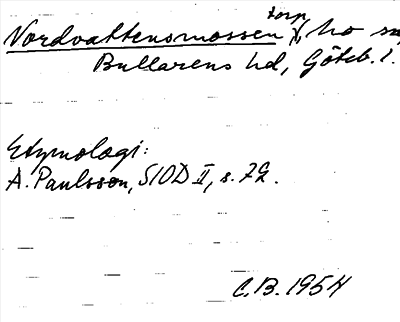 torp,
Nordvattensmossen ho
Bullarens hd, Göteb. l.
Etymologi:
A. Paulsson, SIOD II, s. 72.
C.B. 1954